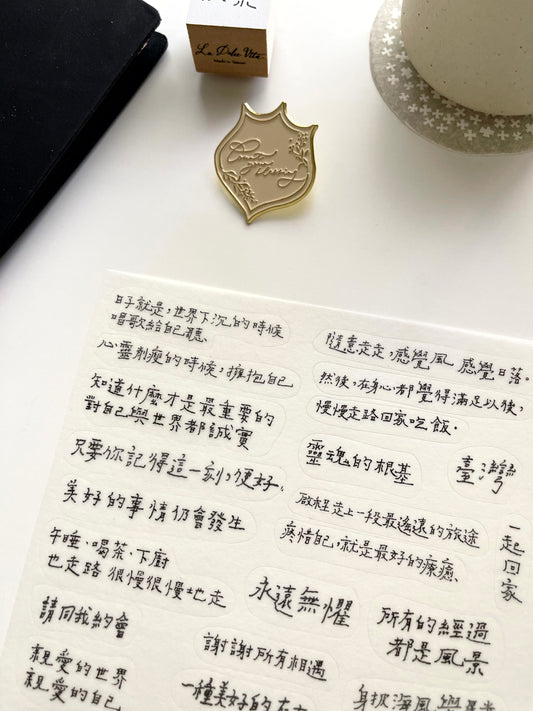 La Dolce Vita
Made in Taiwan
Count
your
blessing
日子就是，世界下沉的時候
唱歌給自己聽。
心靈削瘦的時候，擁抱自己
知道什麼才是最重要的
對自己與世界都誠實
只要你記得這一刻，便好。
美好的事情仍會發生
午睡、喝茶、下廚
也走路 很慢很慢地走
請同我約會
親愛的世界
親愛的自己
隨意走走，感覺風 感覺日落。
然後，在身心都覺得滿足以後，
慢慢走路回家吃飯。
靈魂的根基
臺灣
啟程走上一段最遙遠的旅途
疼惜自己，就是最好的療癒。
一起回家
永遠無懼
所有的經過
都是風景
謝謝所有相遇
一種美好的存在
身披海風